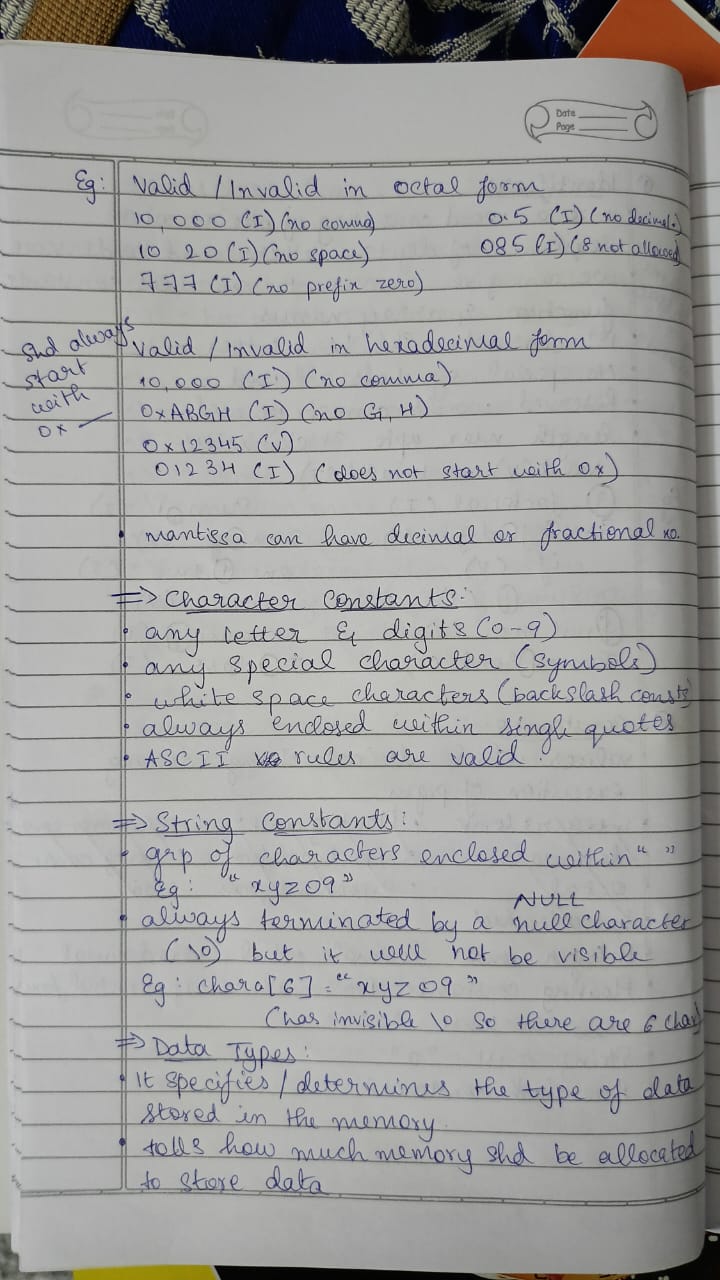 Date
Page
Eg: Valid / Invalid in octal form
10,000 (I) (no comma) 0.5 (I) (no decimal.)
10 20 (I) (no space) 085 (I) (8 not allowed)
777 (I) (no prefix zero)
shd always
start
with
0x
Valid / Invalid in hexadecimal form
10,000 (I) (no comma)
0xABGH (I) (no G, H)
0x12345 (V)
01234 (I) (does not start with 0x)
• mantissa can have decimal or fractional no.
=> Character Constants:
• any letter & digits (0-9)
• any special character (symbols)
• white space characters (backslash consts)
• always enclosed within single quotes
• ASCII rules are valid.
=> String Constants:
• grp of characters enclosed within " "
Eg: "xyz09"
NULL
• always terminated by a null character
(\0) but it will not be visible
Eg: char a[6] = "xyz09"
(has invisible \0 so there are 6 char)
=> Data Types:
• It specifies / determines the type of data
stored in the memory.
• tells how much memory shd be allocated
to store data